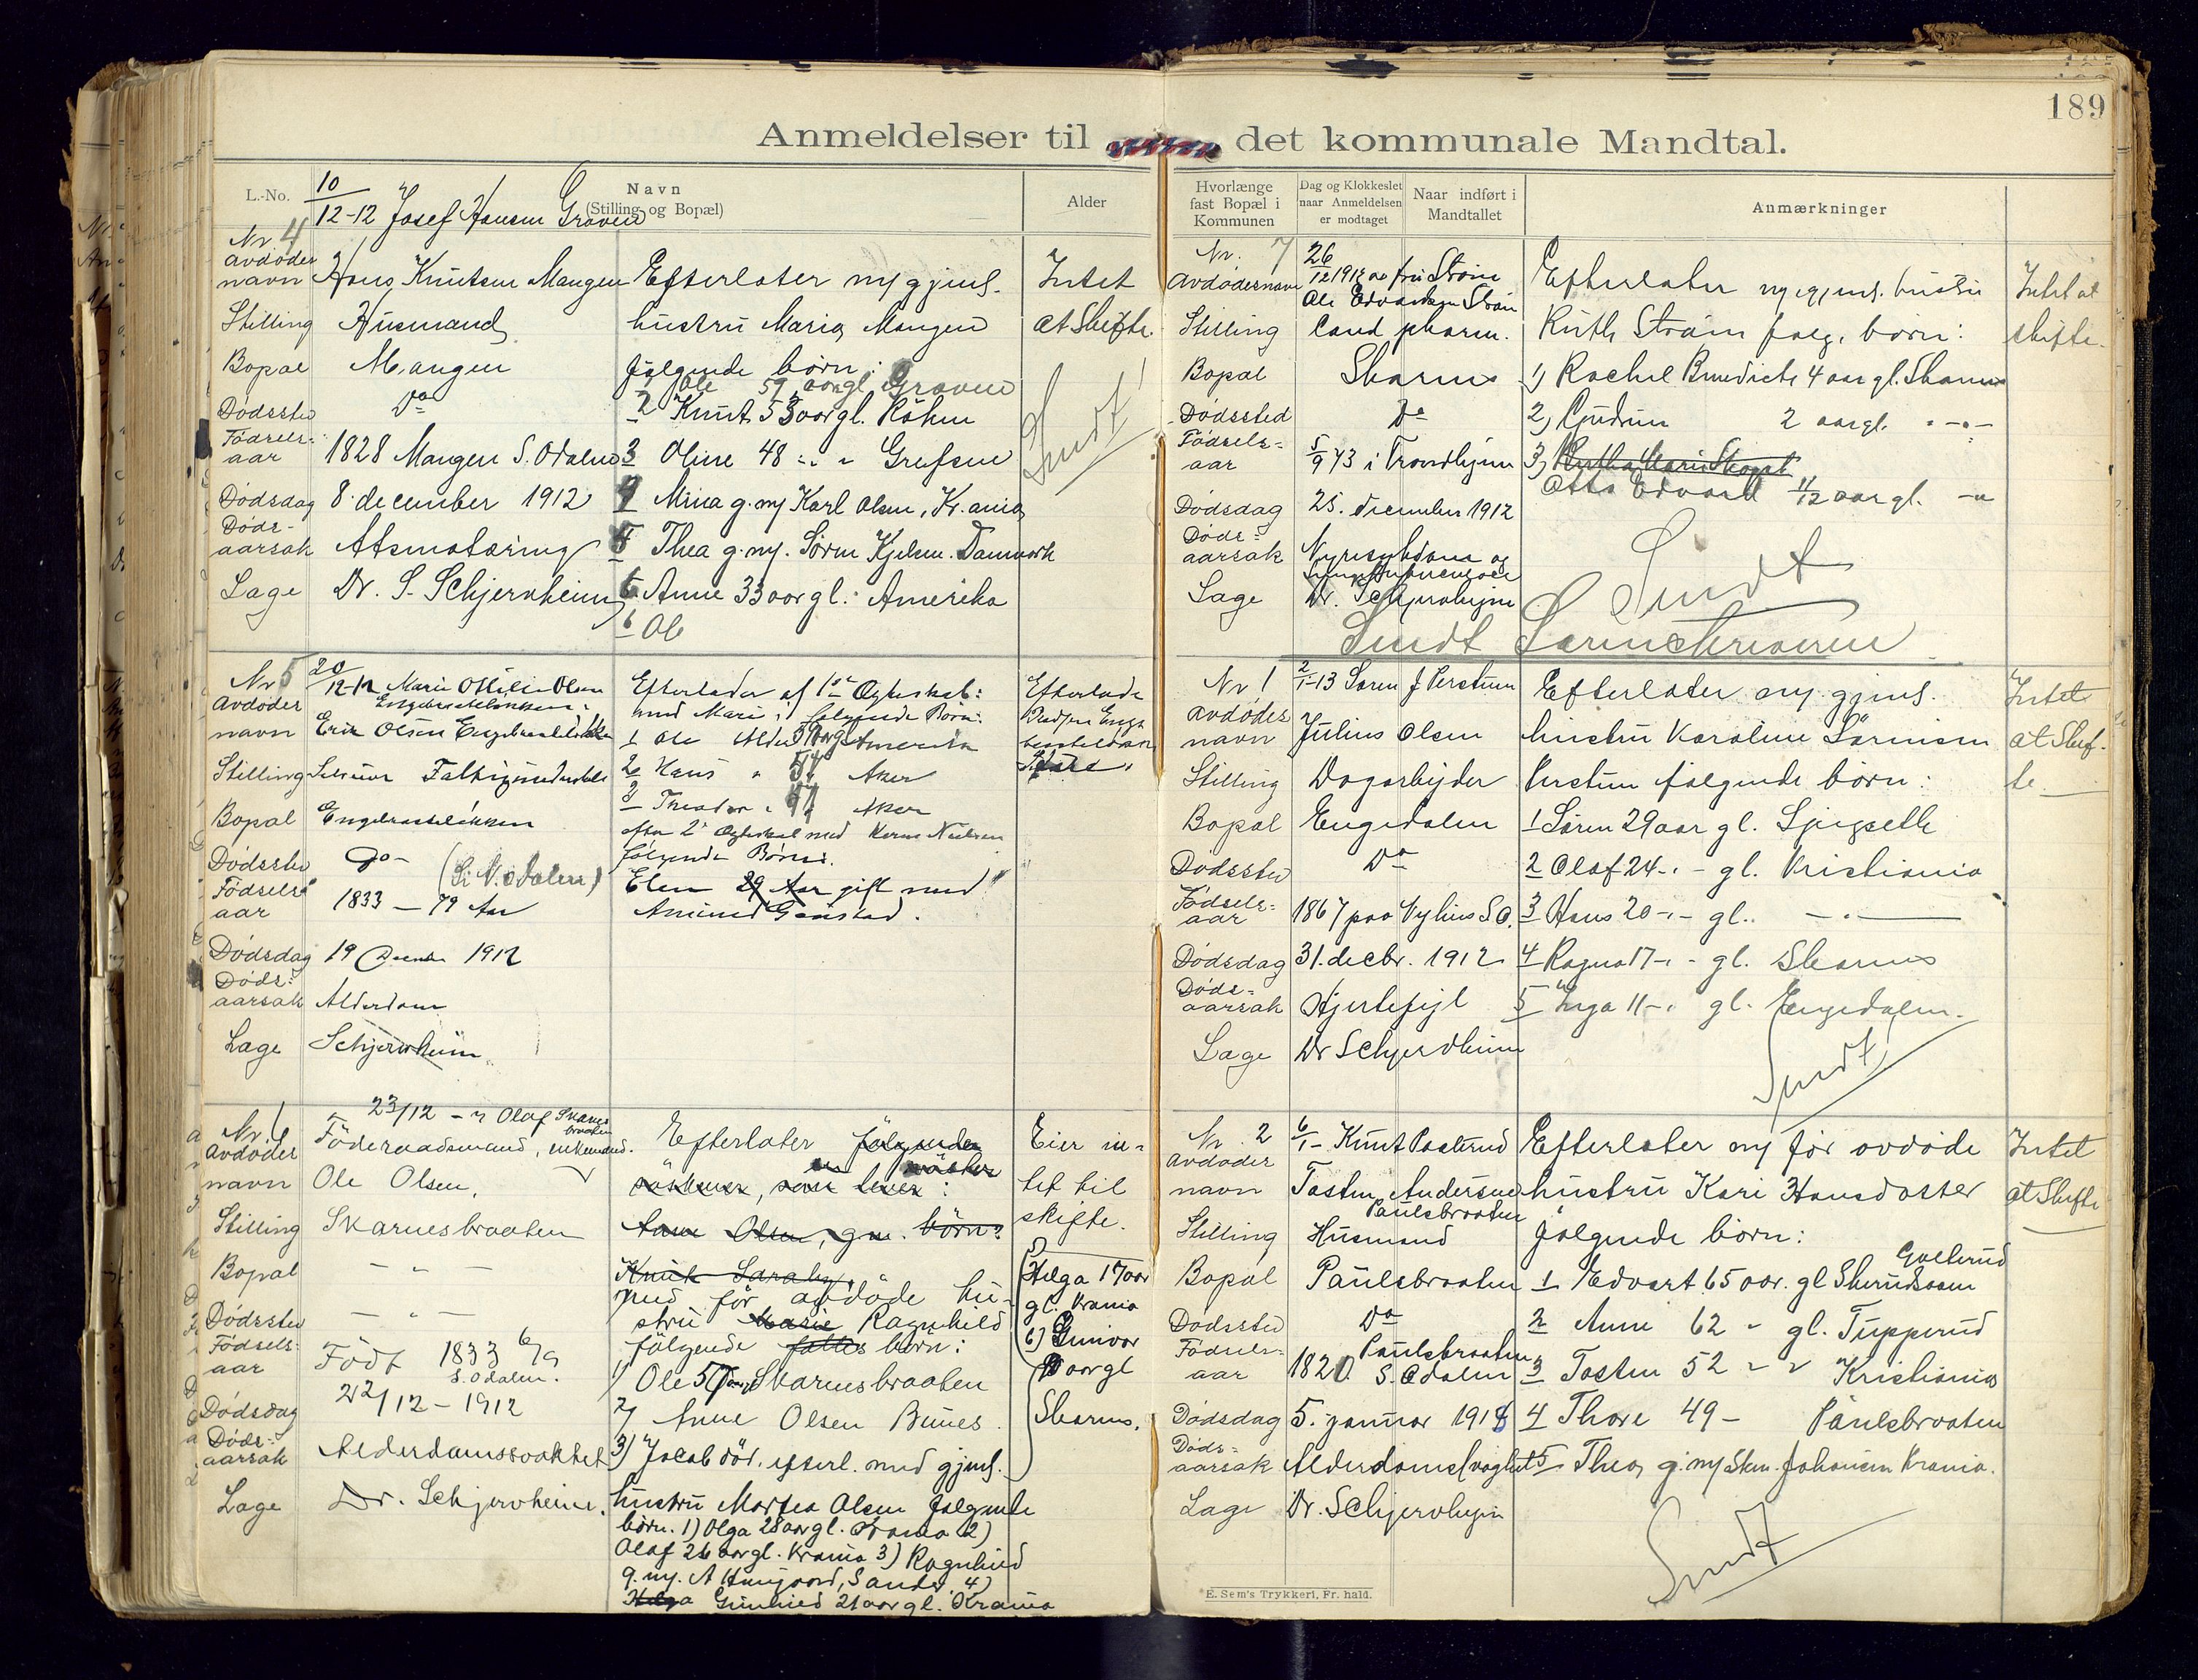 189
Anmeldelser til det kommunale Mandtal.
L.-No.
Navn
(Stilling og Bopæl)
Alder
10/12-12 Josef Hansen Graven
Nr 4
avdødes
navn Hans Knutsen Mangen
Stilling Husmand
Bopæl Mangen
Dødssted Do
Fødsels-
aar 1828 Mangen S. Odalen
Dødsdag 8. december 1912
Døds-
aarsak Atsmatæring
Læge Dr. S. Schjervheim
Efterlater m/ gjenl.
hustru Maria Mangen
følgende børn:
Ole 59 aar gl. Graven
2 Knut 53 aar gl. Råhen
3 Oline 48 " " Grefsen
4 Mina g. m/ Karl Olsen, Kr.ania
5 Thea g. m/. Søren Kjelsen. Danmark
6 Anne 33 aar gl. Amerika
6 Ol
Intet
at Skifte.
Smdt
Nr 5
20/12-12 Marie Otilie Olsen
Engebretsløkken
avdødes
navn Erik Olsen Engebretsløkken
Stilling
Bopæl Engebretsløkken
Dødssted Do
(S. N. Odalen)
Fødsels
aar 1833 — 79 Aar
Dødsdag 19 December 1912
Døds-
aarsak Alderdom
Læge Schjervheim
Efterlader af 1ste Ægteskab:
med Mari følgende Børn:
1 Ole Alder Amerika
2 Hans " Aker
3 Theodor " Aker
efter 2 Ægteskab med Karen Nielsen
følgende Børn.
Elen 29 Aar gift med
Amund Gaustad.
Efterlade
Nr 6
23/12 - Olaf Skarnes
braaten
avdødes Føderaadsmand, enkemand.
navn Ole Olsen,
Stilling Skarnesbraaten
Bopæl — " —
Dødssted — " —
Fødsels-
aar Født 1833 6/9
S. Odalen.
Dødsdag 22/12 - 1912
Døds-
aarsak Alderdomssvakhet
Læge Dr. Schjervheim.
Efterlater følgende
søskener, som lever:
Anne Olsen, gm. børn:
Knut Saraby,
med før avdøde hu-
stru Marie Ragnhild
følgende børn:
1) Ole 57 aar Skarnesbraaten
2) Anne Olsen Bunes.
3) Jacob død. efterl. med gjenl.
hustru Martea Olsen følgende
børn. 1) Olga 28 aar gl. Krania 2)
Olaf 26 aar gl. Krania 3) Ragnhild
g. m/. A Haugaard, Sander. 4)
Helga Gunhild 21 aar gl. Krania
Eier in-
tet til
skifte.
5)
Helga 17 aar
gl. Krania
6) Gunvor
aar gl
Skarnes.
Hvorlænge
fast Bopæl i
Kommunen
Dag og Klokkeslet
naar Anmeldelsen
er modtaget
Naar indført i
Mandtallet
Anmærkninger
Nr. 7
26/12 1912 av fru Strøm
Avdødes navn Ole Edvardsen Strøm
Stilling Cand pharm.
Bopæl Skarnes
Dødssted Do
Fødsels-
aar 5/9 73 i Trondhjem
Dødsdag 25. december 1912
Døds-
aarsak Nyresykdom og
Læge Dr. Schjervheim
Efterlater m/ gjenl. hustru
Ruth Strøm følg. børn:
1) Rachel Benedicte 4 aar gl. Skarnes
2) Gudrun 2 aar gl. " - " -
3) Ruth Marie
Otto Edvard 11/12 aar gl. - "
Intet at
skifte.
Smdt
Smdt Sorenskriveren
Nr 1
2/1-13 Søren J Verstuen
avdødes
navn Julius Olsen
Stilling Dagarbeider
Bopæl Engedalen
Dødssted Do
Fødsels-
aar 1867 paa Nyhus S.O.
Dødsdag 31. decbr. 1912
Døds-
aarsak Hjertefejl
Læge Dr Schjervheim
Efterlater m/ gjenl.
hustru Karoline Sørensen
Verstuen følgende børn:
1 Søren 29 aar gl.
2 Olaf 24 - " - gl. Kristiania
3 Hans 20 - " - gl. — " —
4 Ragna 17 - " - gl. Skarnes
5 Inga 11 - " gl. Engedalen.
Intet
at Skif-
te
Smdt
Nr. 2
6/1 - Knut Pasterud
avdødes
navn Tosten Andersen
Paulsbraaten
Stilling Husmand
Bopæl Paulsbraaten
Dødssted Do
Fødsels-
aar 1820 Paulsbraaten
S. Odalen
Dødsdag 5. januar 1913
Døds-
aarsak Alderdoms svaghet
Læge Dr. Schjervheim
Efterlater m/ før avdøde
hustru Kari Hansdatter
følgende børn:
1 Edvart 65 aar. gl
2 Anne 62 " gl. Tupperud
3 Tosten 52 " " Kristiania
4 Thore 49 — Paulsbraaten
5 Thea g. m/ Johansen Krania.
Intet
at Skifte
Smdt
E. Sem's Trykkeri, Fr. hald.